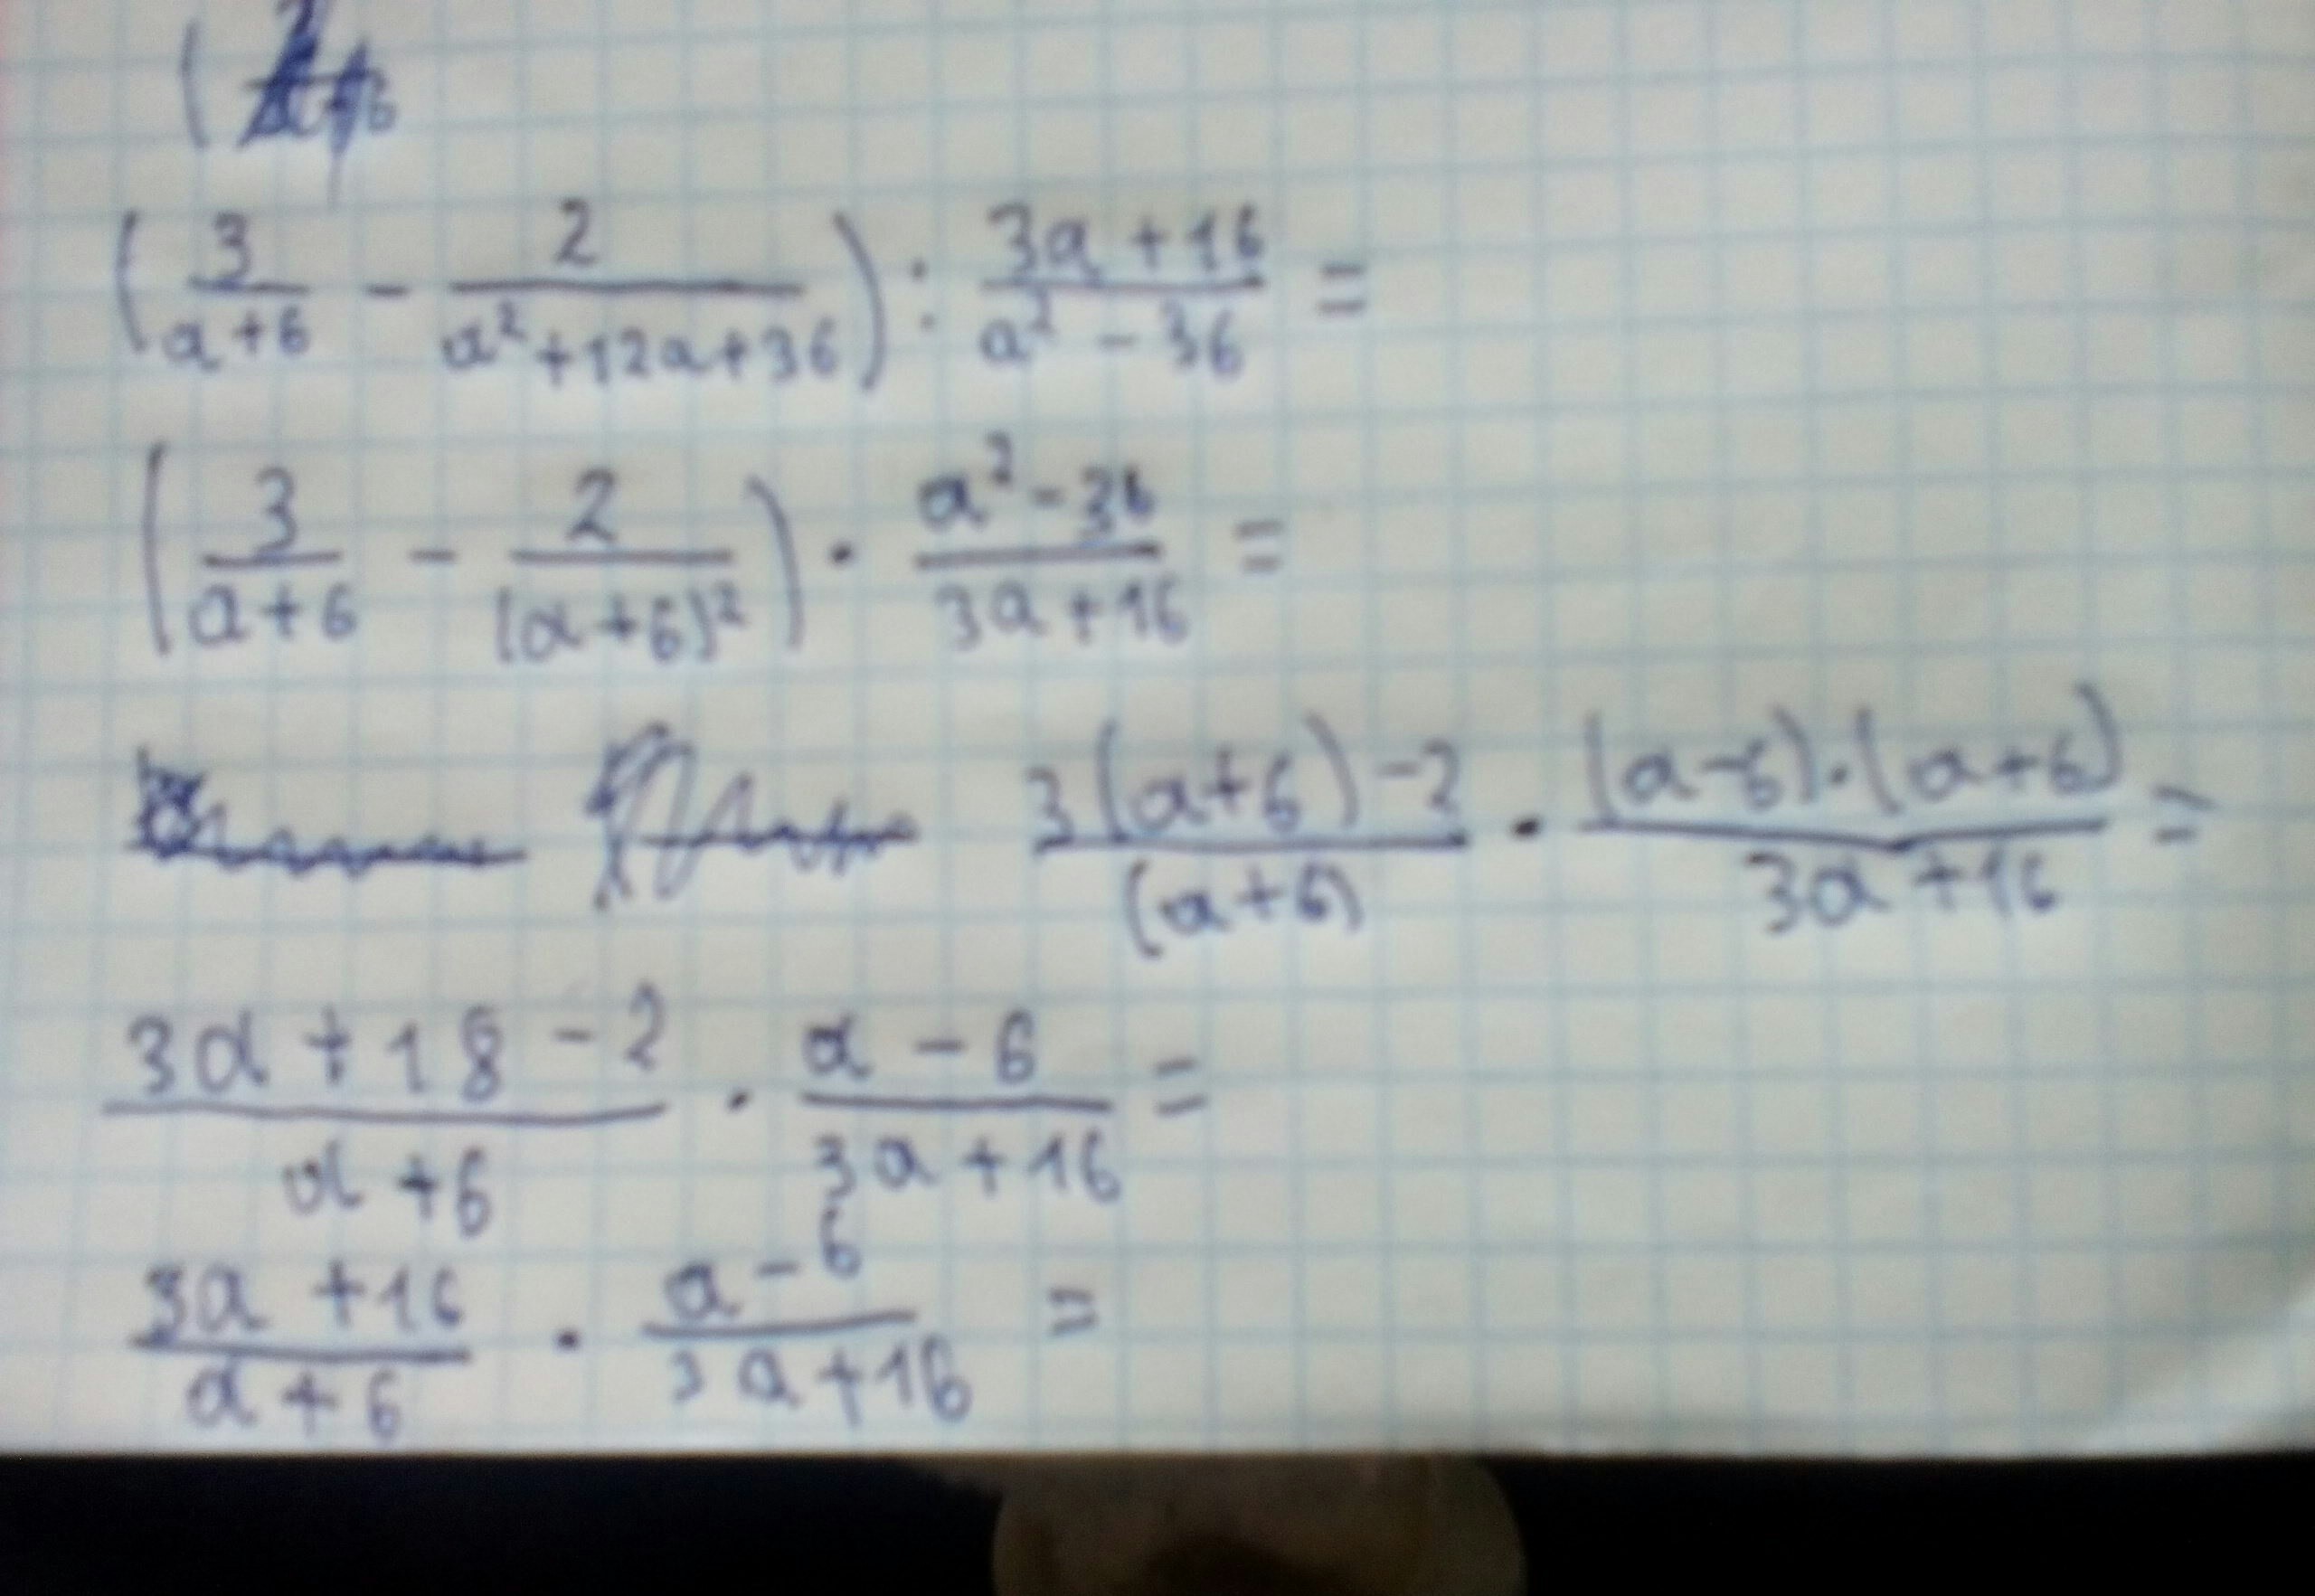 (3/(a+6) - 2/(a²+12a+36)) : (3a+16)/(a²-36) =
(3/(a+6) - 2/(a+6)²) · (a²-36)/(3a+16) =
(3(a+6)-2)/(a+6) · ((a-6)·(a+6))/(3a+16) =
(3a+18-2)/(a+6) · (a-6)/(3a+16) =
(3a+16)/(a+6) · (a-6)/(3a+16) =